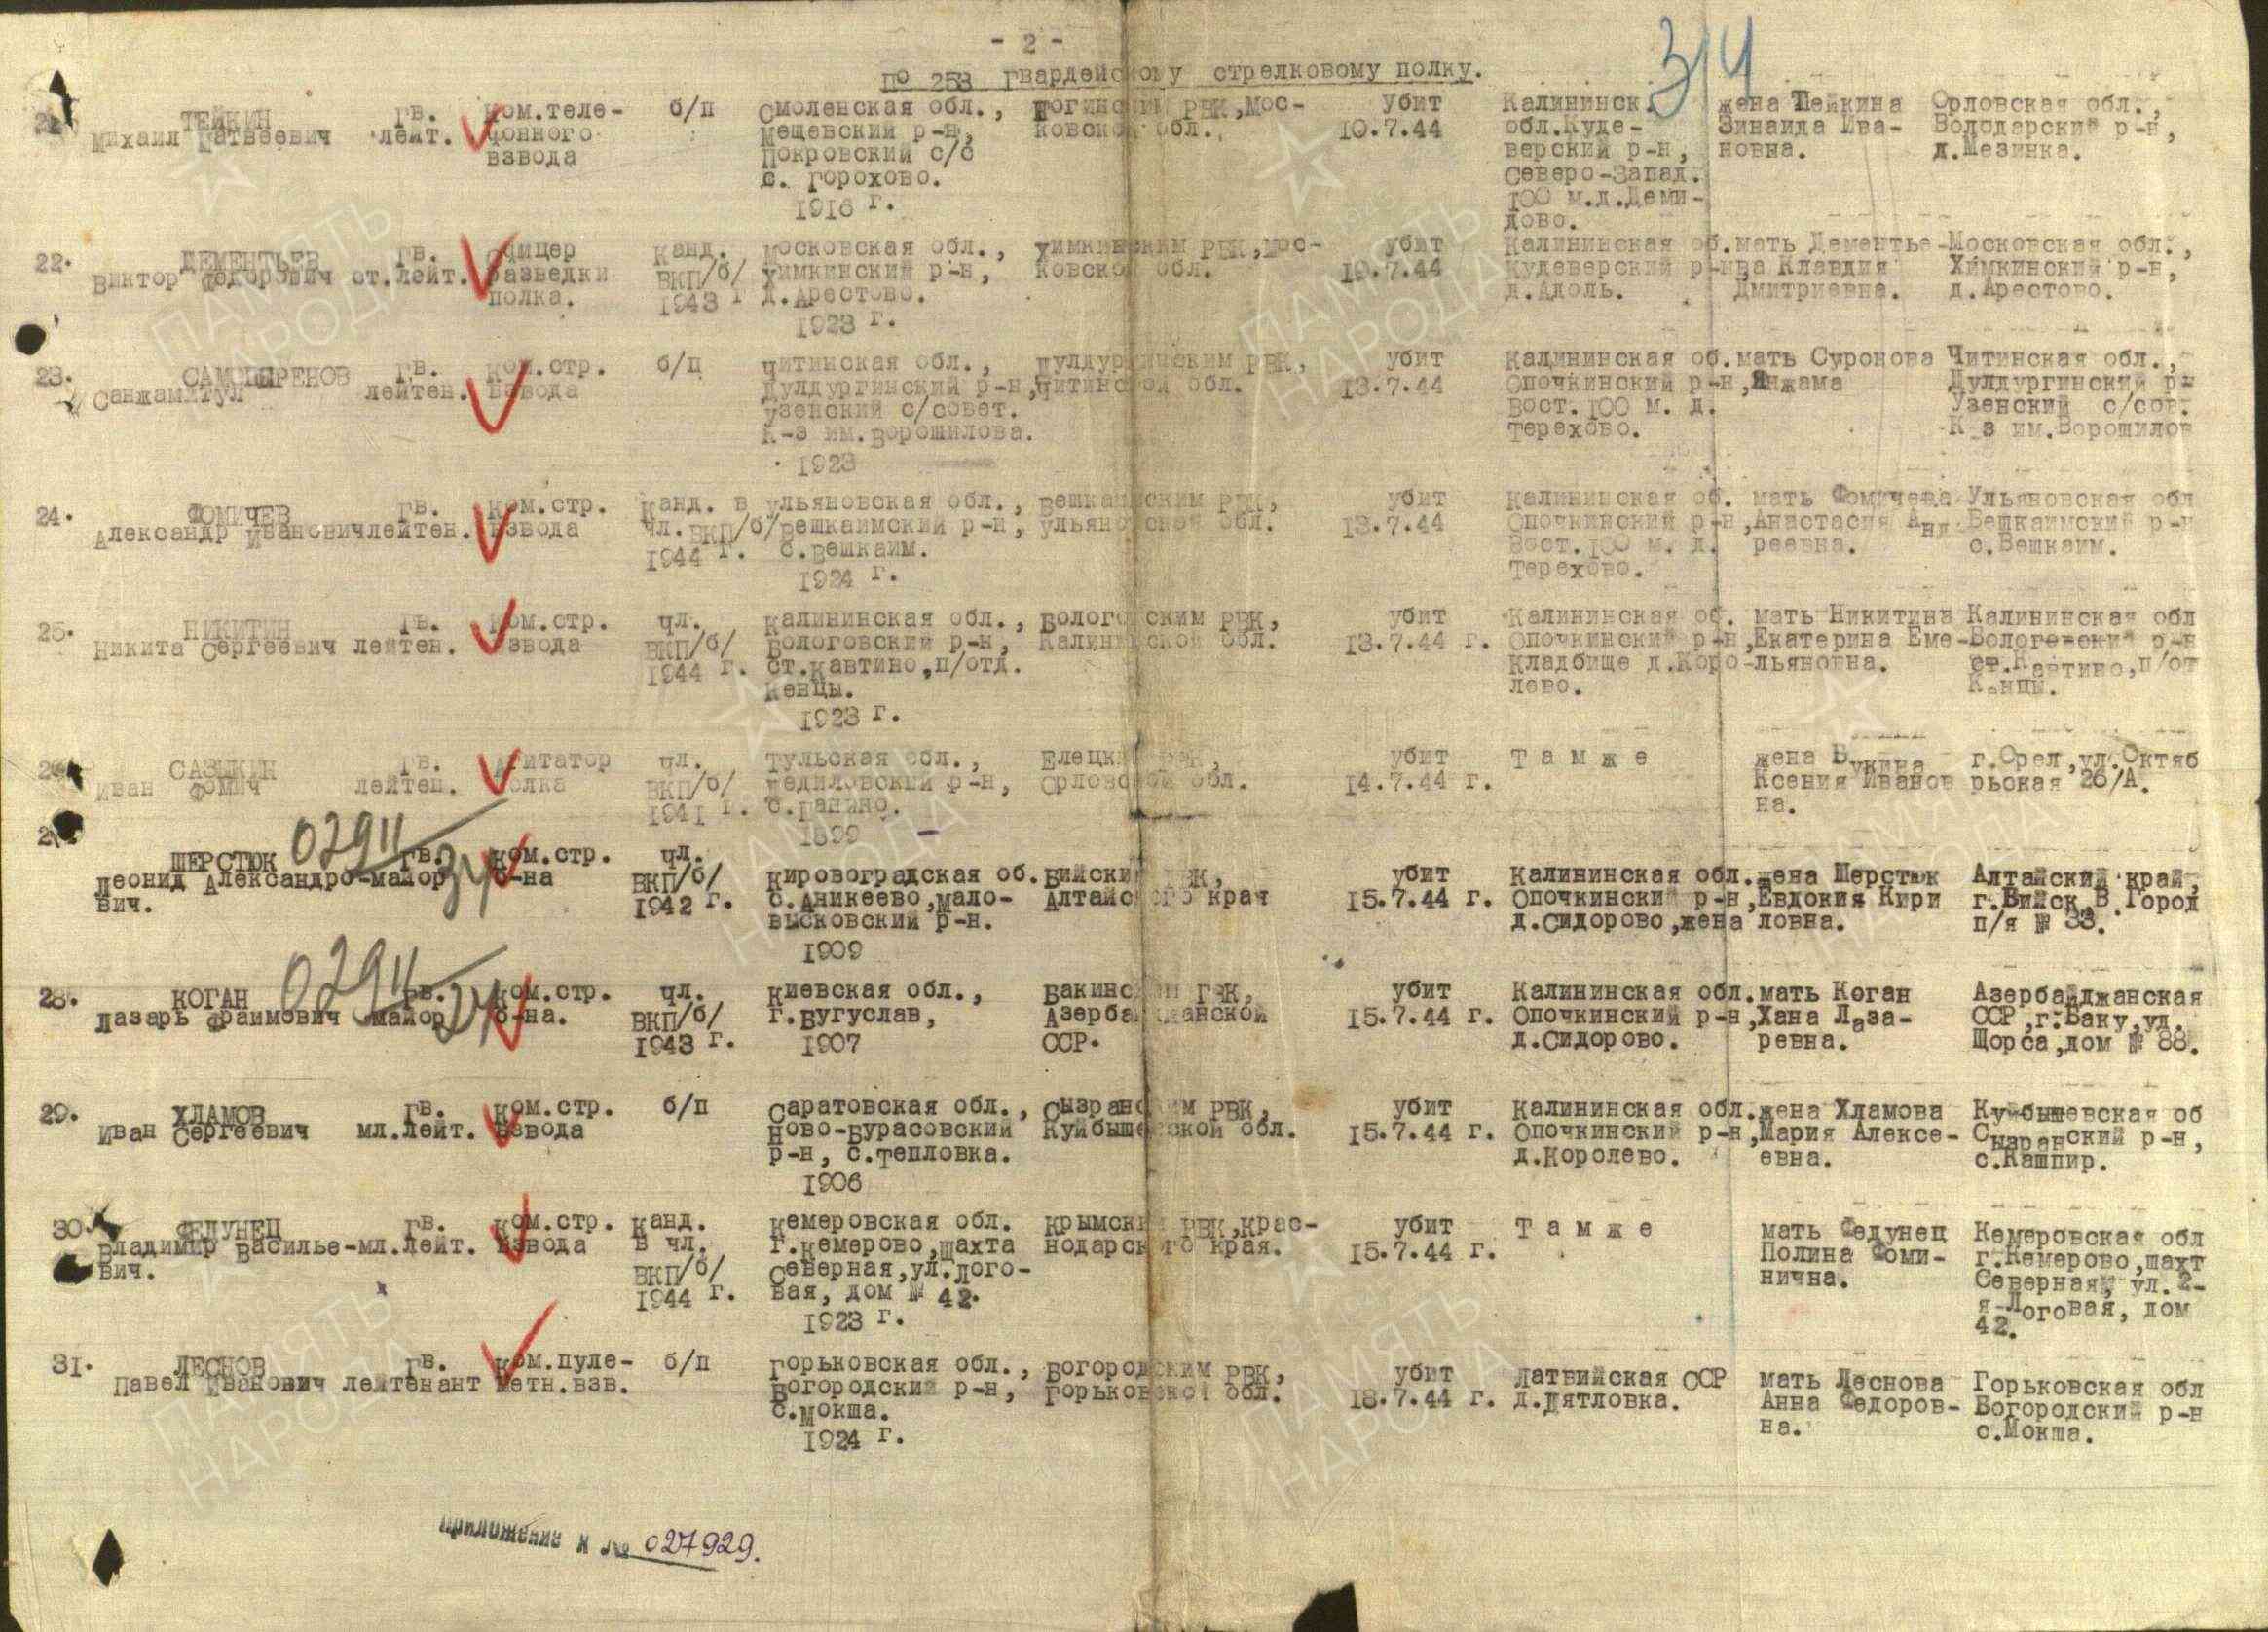 - 2 -
314
по 253 гвардейскому стрелковому полку.
ТЕЙКИН гв. ком.теле- б/п Смоленская обл., Ногинским РВК,Мос- убит Калининск. жена Тейкина Орловская обл.,
Михаил Матвеевич лейт. фонного Мещевский р-н, ковской обл. 10.7.44 обл.Куде- Зинаида Ива- Володарский р-н,
взвода Покровский с/с верский р-н, новна. д.Мезинка.
с. Горохово. Северо-Запад.
1916 г. 100 м.д.Деми-
дово.
22. ДЕМЕНТЬЕВ гв. офицер Канд. Московская обл., Химкинским РВК,Мос- убит Калининская об. мать Дементье- Московская обл.,
Виктор Федорович ст.лейт. разведки ВКП/б/ Химкинский р-н, ковской обл. 10.7.44 Кудеверский р-н ва Клавдия Химкинский р-н,
полка. 1943 г д.Арестово. д.Адоль. Дмитриевна. д.Арестово.
1923 г.
23. САМПИРЕНОВ гв. ком.стр. б/п Читинская обл., Дулдургинским РВК, убит Калининская об. мать Суронова Читинская обл.,
Санжамитул лейтен. взвода Дулдургинский р-н, Читинской обл. 13.7.44 Опочкинский р-н, Янжама Дулдургинский р-
Узенский с/совет. Вост.100 м. д. Узенский с/сов.
К-з им.Ворошилова. Терехово. К_з им.Ворошилов
1923
24. ФОМИЧЕВ гв. ком.стр. Канд. в Ульяновская обл., Вешкаимским РВК, убит Калининская об. мать Фомичева Ульяновская обл
Александр Ивановичлейтен. взвода чл.ВКП/б/ Вешкаимский р-н, Ульяновской обл. 13.7.44 Опочкинский р-н, Анастасия Анд Вешкаимский р-н
1944 г. с.Вешкаим. Вост.100 м. д. реевна. с.Вешкаим.
1924 г. Терехово.
25. НИКИТИН гв. ком.стр. чл. Калининская обл., Бологовским РВК, убит Калининская об. мать Никитина Калининская обл
Никита Сергеевич лейтен. взвода ВКП/б/ Бологовский р-н, Калининской обл. 13.7.44 г. Опочкинский р-н, Екатерина Еме- Бологовский р-н
1944 г. ст.Кавтино,п/отд. Кладбище д.Коро- льяновна. ст.Кавтино,п/от
Кенцы. лево. Кенцы.
1923 г.
САЗЫКИН гв. агитатор чл. Тульская обл., Елецким РВК, убит Т а м ж е жена Букина г.Орел,ул.Октяб
Иван Фомич лейтен. полка ВКП/б/ Гедиловский р-н, Орловской обл. 14.7.44 г. Ксения Иванов рьская 26/А.
1941 г. с.Ганино. на.
1899 -
02911
34
ШЕРСТЮК гв. ком.стр. чл. Кировоградская об. Бийским РВК, убит Калининская обл. жена Шерстюк Алтайский край,
Леонид Александро- майор б-на ВКП/б/ с.Аникеево,Мало- Алтайского края 15.7.44 г. Опочкинский р-н, Евдокия Кири г.Бийск,В Город
вич. 1942 г. высковский р-н. д.Сидорово,жена ловна. п/я № 33.
1909
02911
34
28. КОГАН гв. ком.стр. чл. Киевская обл., Бакинским ГВК, убит Калининская обл. мать Коган Азербайджанская
Лазарь Фраимович майор б-на. ВКП/б/ г.Бугуслав, Азербайджанской 15.7.44 г. Опочкинский р-н, Хана Лаза- ССР,г.Баку,ул.
1943 г. 1907 ССР. д.Сидорово. ревна. Щорса,дом № 88.
29. ХЛАМОВ гв. ком.стр. б/п Саратовская обл., Сызранским РВК, убит Калининская обл. жена Хламова Куйбышевская об
Иван Сергеевич мл.лейт. взвода Ново-Бурасовский Куйбышевской обл. 15.7.44 г. Опочкинский р-н, Мария Алексе- Сызранский р-н,
р-н, с.Тепловка. д.Королево. евна. с.Кашпир.
1906
30 ФЕДУНЕЦ гв. ком.стр. Канд. Кемеровская обл. Крымским РВК,Крас- убит Т а м ж е мать Федунец Кемеровская обл
Владимир Василье- мл.лейт. взвода в чл. г.Кемерово,шахта нодарского края. 15.7.44 г. Полина Фоми- г.Кемерово,шахт
вич. ВКП/б/ Северная,ул.Лого- нична. Северная, ул.2-
1944 г. вая, дом № 42. я-Логовая, дом
1923 г. 42.
31. ЛЕСНОВ гв. ком.пуле- б/п Горьковская обл., Богородским РВК, убит Латвийская ССР мать Леснова Горьковская обл
Павел Иванович лейтенант метн.взв. Богородский р-н, Горьковской обл. 18.7.44 г. д.Дятловка. Анна Федоров- Богородский р-н
с.Мокша. на. с.Мокша.
1924 г.
приложение к № 027929.
ПАМЯТЬ
НАРОДА